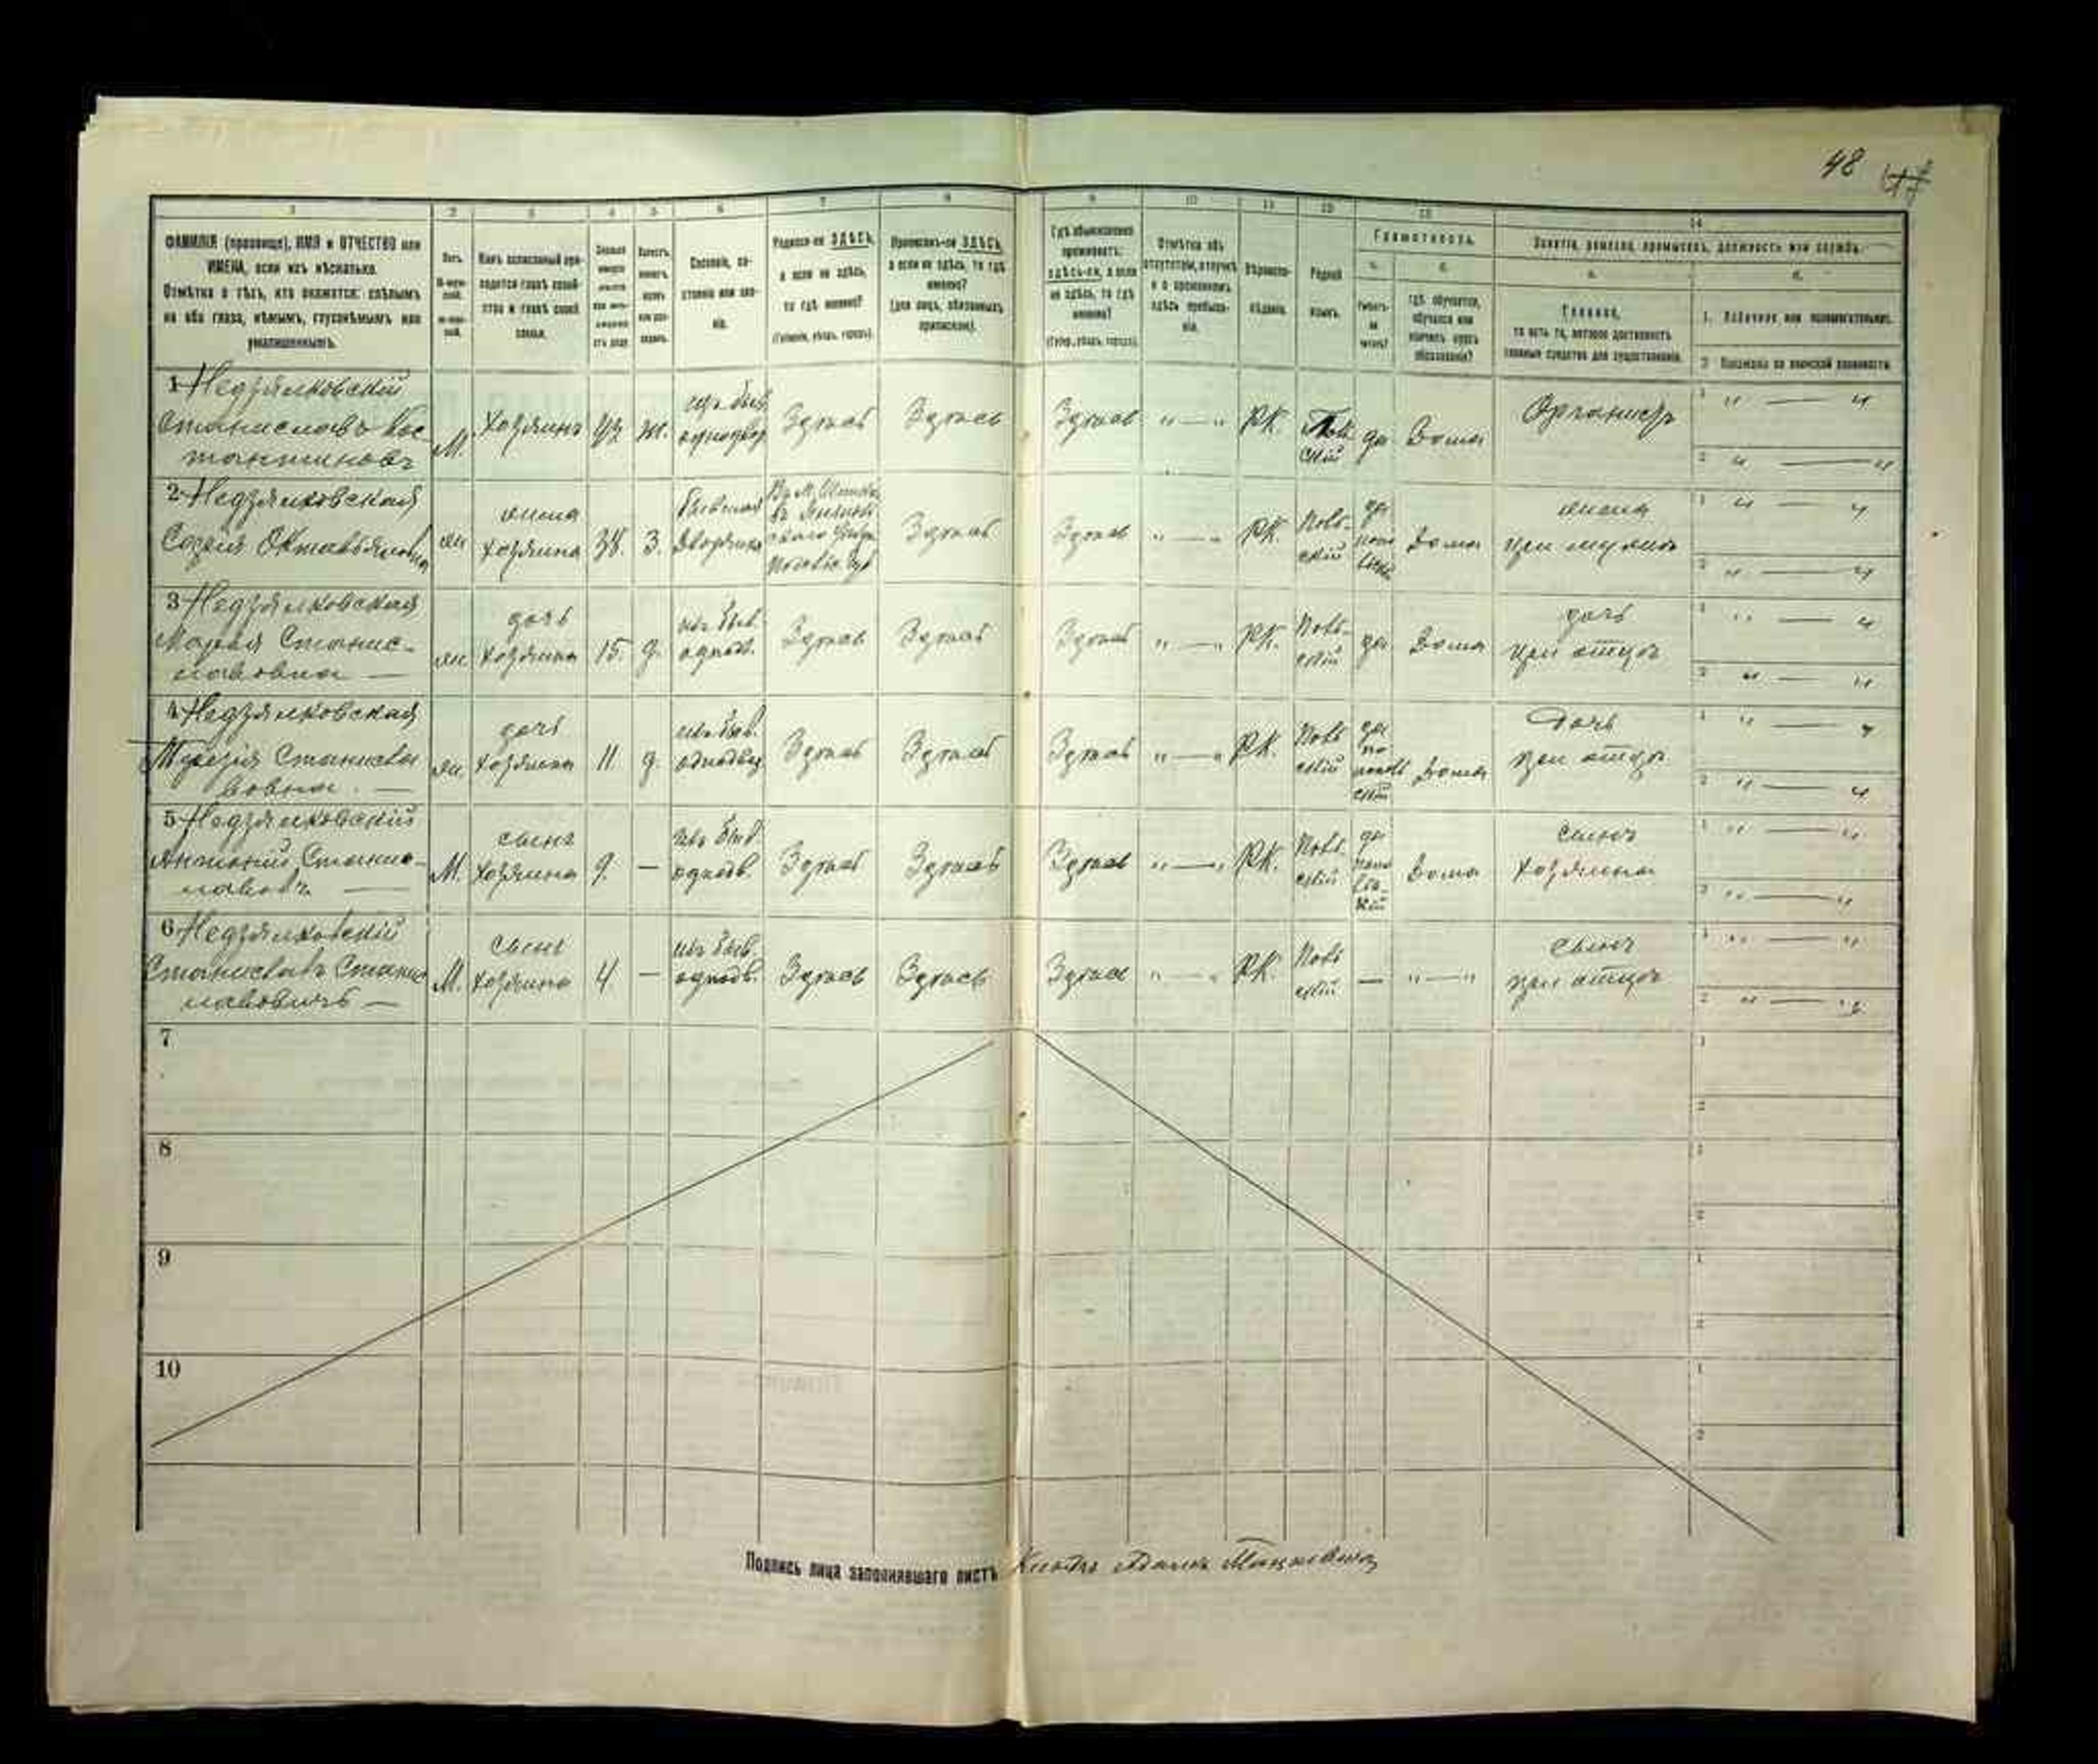 48
1 2 3 4 5 6 7 8 9 10 11 12 13 14
ФАМИЛІЯ (прозвище), ИМЯ и ОТЧЕСТВО или
ИМЕНА, если ихъ нѣсколько.
Отмѣтка о тѣхъ, кто окажется: слѣпымъ
на оба глаза, нѣмымъ, глухонѣмымъ или
умалишеннымъ.
Полъ.
Какъ записанный при-
ходится главѣ хозяй-
ства и главѣ своей
семьи.
Сословіе, со-
стояніе или зва-
ніе.
Родился-ли ЗДѢСЬ,
а если не здѣсь,
то гдѣ именно?
(Губернія, уѣздъ, городъ).
Приписанъ-ли ЗДѢСЬ,
а если не здѣсь, то гдѣ
именно?
(для лицъ, обязанныхъ
припискою).
Гдѣ обыкновенно
проживаетъ:
здѣсь-ли, а если
не здѣсь, то гдѣ
именно?
(Губер., уѣздъ, городъ).
Отмѣтка объ
отсутствіи, отлучкѣ
и о временномъ
здѣсь пребыва-
ніи.
Вѣроиспо-
вѣданіе.
Родной
языкъ.
Грамотность.
а.
Умѣетъ-
ли
читать?
б.
гдѣ обучается,
обучался или
кончилъ курсъ
образованія?
Занятіе, ремесло, промыселъ, должность или служба.
а.
Главное,
то есть то, которое доставляетъ
главныя средства для существованія.
б.
1. Побочное или вспомогательное.
2. Положеніе по воинской повинности.
1 Недзялковскій
Станиславъ Кос-
тантиновъ
М. Хозяинъ 42 ж. изъ быв. однодвор Здѣсь Здѣсь Здѣсь „ — „ РК. Поль-скій да Дома Органистъ
2 Недзялковская
Софія Октавьяновна
жен жена хозяина 38. З. бывшая дворянка Здѣсь Здѣсь „ — „ РК. Поль-скій да Дома жена при мужѣ
3 Недзялковская
Марья Станис-
лавовна —
жен дочь хозяина 15. д. изъ быв. однодв. Здѣсь Здѣсь Здѣсь „ — „ РК. Поль-скій да Дома дочь при отцѣ
4 Недзялковская
Станисла
вовна. —
жен дочь хозяина 11 д. изъ быв. однодвор Здѣсь Здѣсь Здѣсь „ — „ РК. Поль скій да по польскій Дома Дочь при отцѣ
5 Недзялковскій
Антоній Станис-
лавовъ —
М. сынъ хозяина 9. — изъ быв. однодв. Здѣсь Здѣсь Здѣсь „ — „ РК. Поль скій да Дома сынъ хозяина
6 Недзялковскій
Станиславъ Станис
лавовичъ —
М. сынъ хозяина 4 — изъ быв. однодв. Здѣсь Здѣсь Здѣсь „ — „ РК. Поль скій — „ — „ сынъ при отцѣ
7
8
9
10
Подпись лица заполнявшаго листъ Адамъ